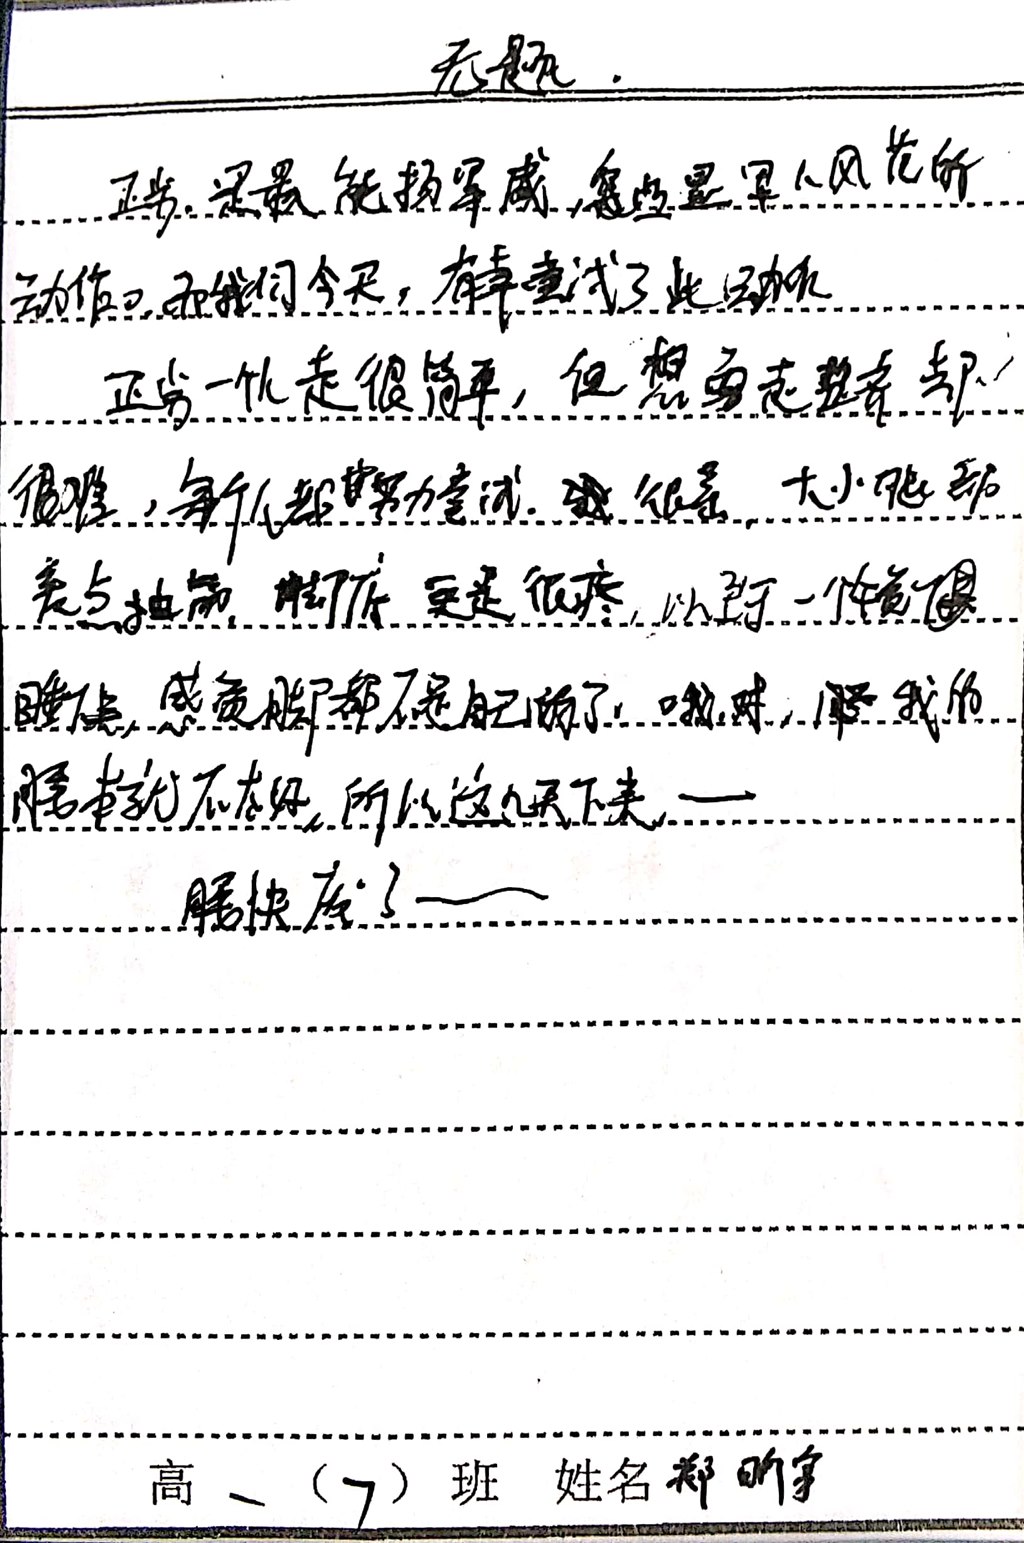 无题.
正步,是最能扬军威,显军人风范的
动作。而我们今天,有幸尝试了此动作
正步一个人走很简单,但想要走整齐却
很难,每个人都努力尝试.我很累,大小腿都
差点抽筋,脚底更是很疼,以至于一个午觉
睡醒,感觉脚都不是自己的了.哦对,我的
腰本就不太好,所以这几天下来,——
腰快废了——
高一(7)班 姓名 郑昕宇